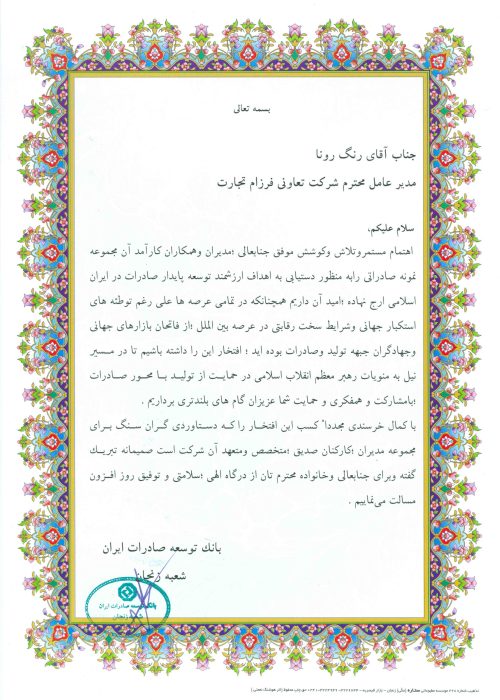 بسمه تعالی
جناب آقای رنگ رونا
مدیر عامل محترم شرکت تعاونی فرزام تجارت
سلام علیکم،
اهتمام مستمروتلاش وکوشش موفق جنابعالی ؛مدیران وهمکاران کارآمد آن مجموعه
نمونه صادراتی رابه منظور دستیابی به اهداف ارزشمند توسعه پایدار صادرات در ایران
اسلامی ارج نهاده ؛امید آن داریم همچنانکه در تمامی عرصه ها علی رغم توطئه های
استکبار جهانی وشرایط سخت رقابتی در عرصه بین الملل ؛از فاتحان بازارهای جهانی
وجهادگران جبهه تولید وصادرات بوده اید ؛ افتخار این را داشته باشیم تا در مسیر
نیل به منویات رهبر معظم انقلاب اسلامی در حمایت از تولید با محور صادرات
؛بامشارکت و همفکری و حمایت شما عزیزان گام های بلندتری برداریم .
با کمال خرسندی مجدداً کسب این افتخار را که دستاوردی گران سنگ برای
مجموعه مدیران ؛کارکنان صدیق ؛متخصص ومتعهد آن شرکت است صمیمانه تبریک
گفته وبرای جنابعالی وخانواده محترم تان از درگاه الهی ؛سلامتی و توفیق روز افزون
مسالت می‌نماییم .
بانک توسعه صادرات ایران
شعبه زنجان
بانک توسعه صادرات ایران
شعبه زنجان